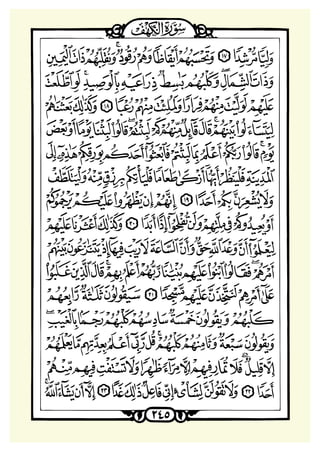 سُورَةُ الْكَهْفِ
وَلِيًّا مُّرْشِدًا ١٧ وَتَحْسَبُهُمْ أَيْقَاظًا وَهُمْ رُقُودٌ ۚ وَنُقَلِّبُهُمْ ذَاتَ الْيَمِينِ
وَذَاتَ الشِّمَالِ ۖ وَكَلْبُهُم بَاسِطٌ ذِرَاعَيْهِ بِالْوَصِيدِ ۚ لَوِ اطَّلَعْتَ
عَلَيْهِمْ لَوَلَّيْتَ مِنْهُمْ فِرَارًا وَلَمُلِئْتَ مِنْهُمْ رُعْبًا ١٨ وَكَذَٰلِكَ بَعَثْنَاهُمْ
لِيَتَسَاءَلُوا بَيْنَهُمْ ۚ قَالَ قَائِلٌ مِّنْهُمْ كَمْ لَبِثْتُمْ ۖ قَالُوا لَبِثْنَا يَوْمًا أَوْ بَعْضَ
يَوْمٍ ۚ قَالُوا رَبُّكُمْ أَعْلَمُ بِمَا لَبِثْتُمْ فَابْعَثُوا أَحَدَكُم بِوَرِقِكُمْ هَٰذِهِ إِلَى
الْمَدِينَةِ فَلْيَنظُرْ أَيُّهَا أَزْكَىٰ طَعَامًا فَلْيَأْتِكُم بِرِزْقٍ مِّنْهُ وَلْيَتَلَطَّفْ
وَلَا يُشْعِرَنَّ بِكُمْ أَحَدًا ١٩ إِنَّهُمْ إِن يَظْهَرُوا عَلَيْكُمْ يَرْجُمُوكُمْ
أَوْ يُعِيدُوكُمْ فِي مِلَّتِهِمْ وَلَن تُفْلِحُوا إِذًا أَبَدًا ٢٠ وَكَذَٰلِكَ أَعْثَرْنَا عَلَيْهِمْ
لِيَعْلَمُوا أَنَّ وَعْدَ اللَّهِ حَقٌّ وَأَنَّ السَّاعَةَ لَا رَيْبَ فِيهَا إِذْ يَتَنَازَعُونَ بَيْنَهُمْ
أَمْرَهُمْ ۖ فَقَالُوا ابْنُوا عَلَيْهِم بُنْيَانًا ۖ رَّبُّهُمْ أَعْلَمُ بِهِمْ ۚ قَالَ الَّذِينَ غَلَبُوا
عَلَىٰ أَمْرِهِمْ لَنَتَّخِذَنَّ عَلَيْهِم مَّسْجِدًا ٢١ سَيَقُولُونَ ثَلَاثَةٌ رَّابِعُهُمْ
كَلْبُهُمْ وَيَقُولُونَ خَمْسَةٌ سَادِسُهُمْ كَلْبُهُمْ رَجْمًا بِالْغَيْبِ ۖ
وَيَقُولُونَ سَبْعَةٌ وَثَامِنُهُمْ كَلْبُهُمْ ۚ قُل رَّبِّي أَعْلَمُ بِعِدَّتِهِم مَّا يَعْلَمُهُمْ
إِلَّا قَلِيلٌ ۗ فَلَا تُمَارِ فِيهِمْ إِلَّا مِرَاءً ظَاهِرًا وَلَا تَسْتَفْتِ فِيهِم مِّنْهُمْ
أَحَدًا ٢٢ وَلَا تَقُولَنَّ لِشَيْءٍ إِنِّي فَاعِلٌ ذَٰلِكَ غَدًا ٢٣ إِلَّا أَن يَشَاءَ اللَّهُ ۚ
٢٤٥